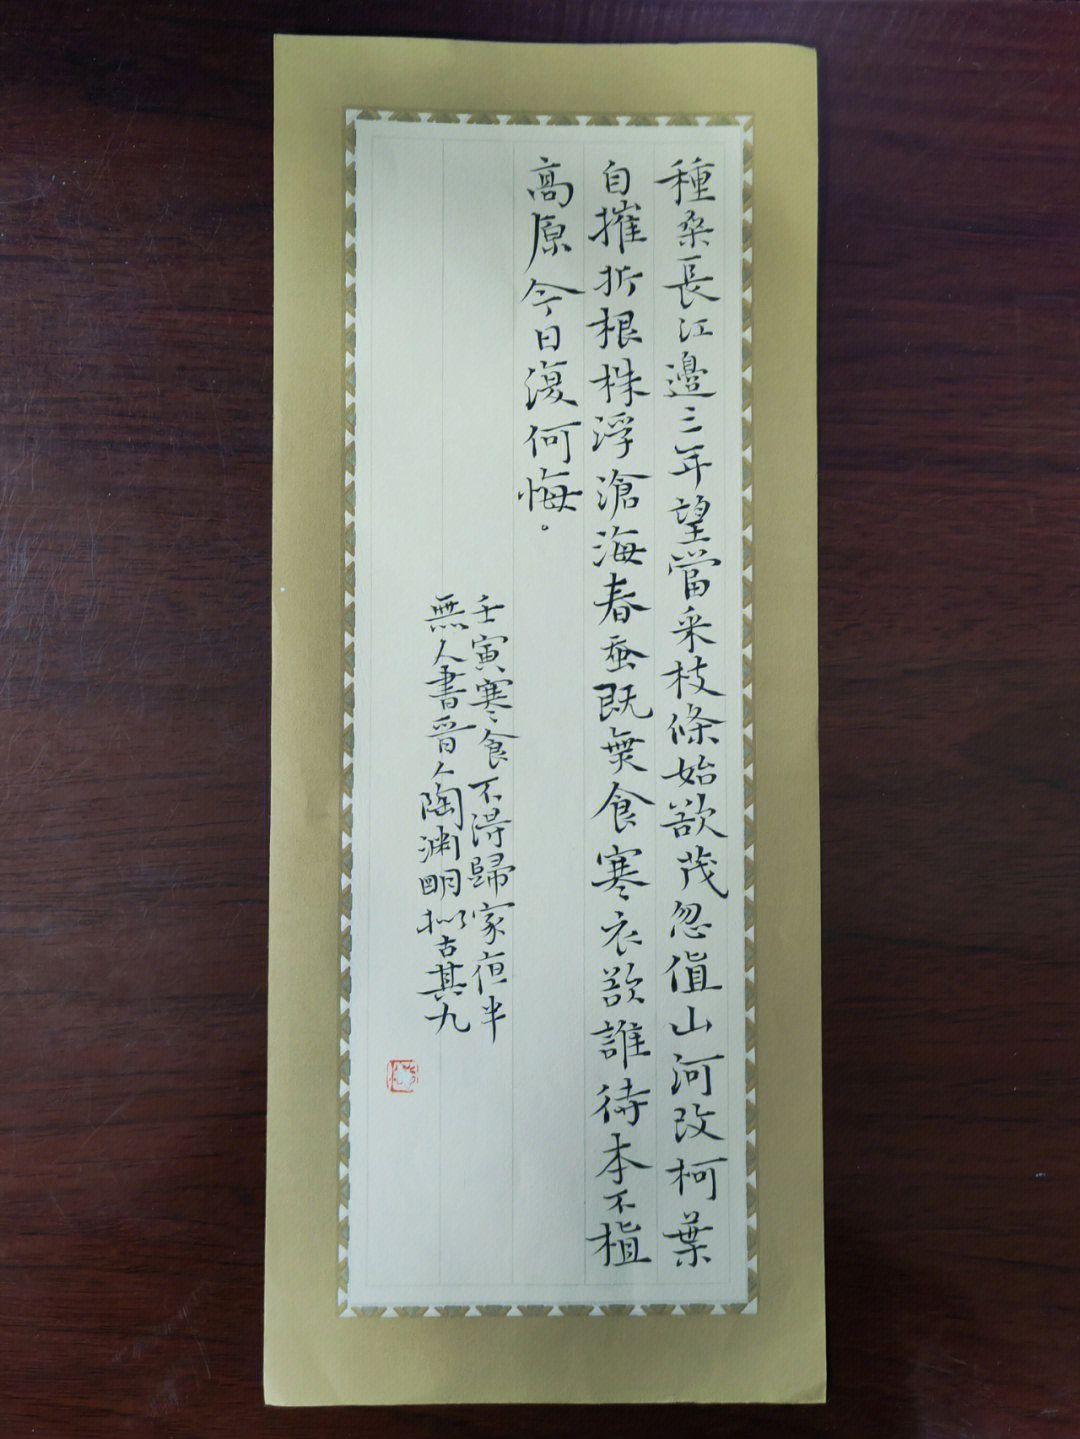 種桑長江邊三年望當采枝條始欲茂忽值山河改柯葉
自摧折根株浮滄海春蚕既無食寒衣欲誰待本不植
高原今日復何悔。
壬寅寒食不得歸家夜半
無人書晉人陶渊明拟古其九